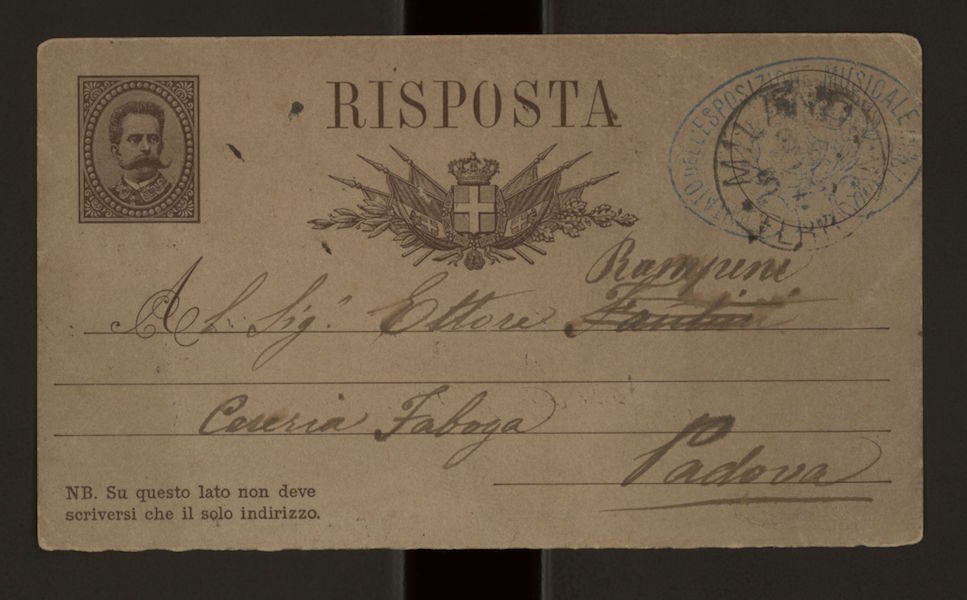 RISPOSTA
DELL'ESPOSIZIONE MUSICALE
MILANO
FERROVIA
Rampini
Al Sig.r Ettore Fantini
Cereria Faboga
Padova
NB. Su questo lato non deve
scriversi che il solo indirizzo.